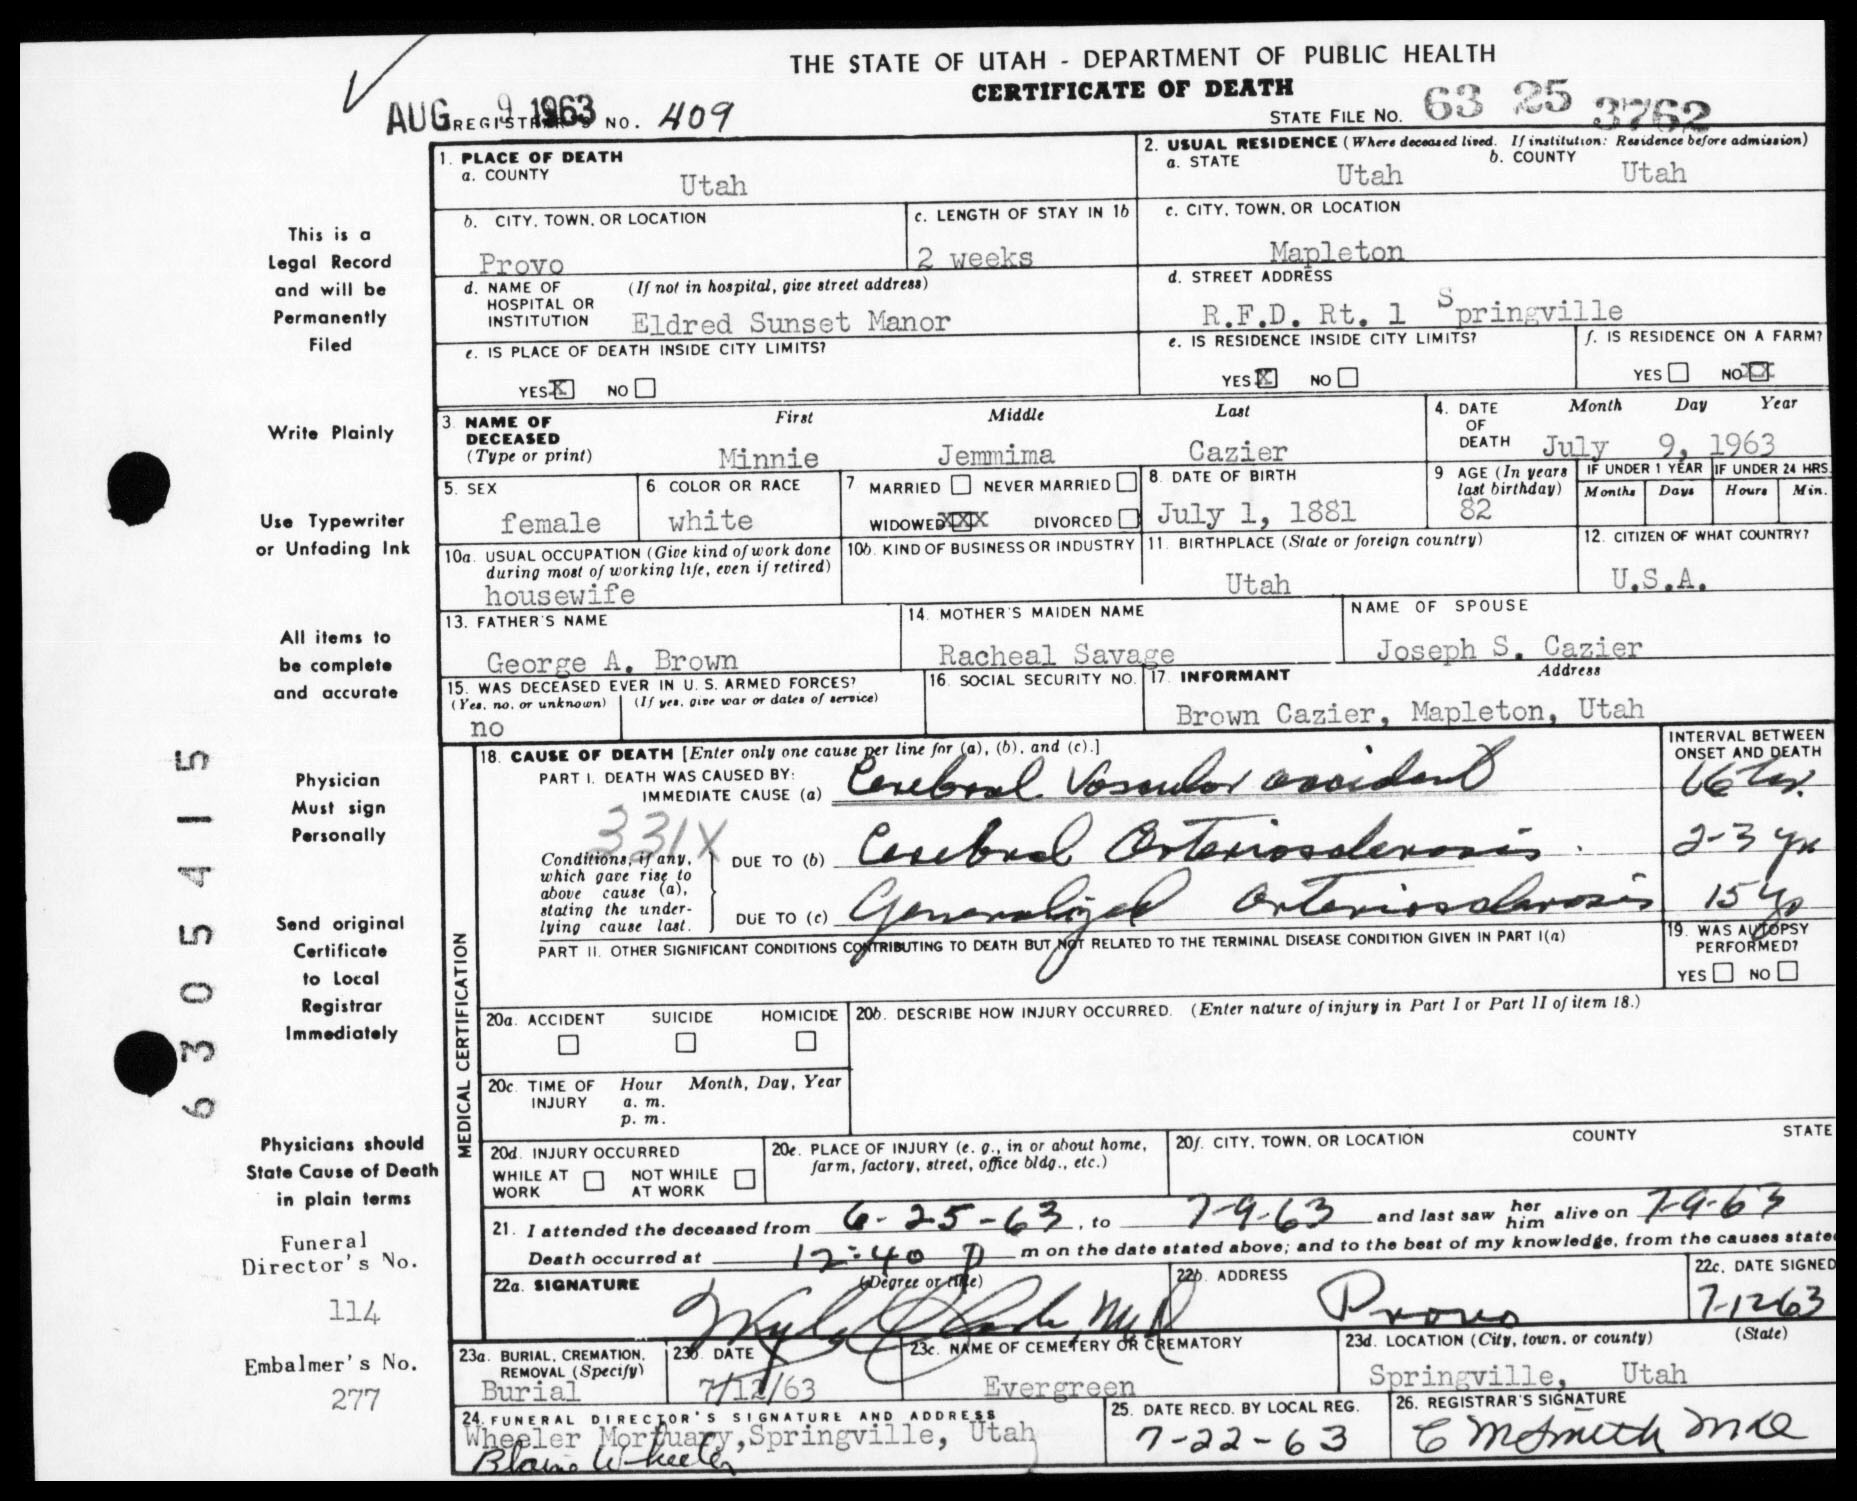 THE STATE OF UTAH - DEPARTMENT OF PUBLIC HEALTH
CERTIFICATE OF DEATH
AUG 9 1963
REGISTRAR'S NO. 409
STATE FILE NO. 63 25 3762
1. PLACE OF DEATH
a. COUNTY Utah
2. USUAL RESIDENCE (Where deceased lived. If institution: Residence before admission)
a. STATE Utah b. COUNTY Utah
b. CITY, TOWN, OR LOCATION Provo
c. LENGTH OF STAY IN 1b 2 weeks
c. CITY, TOWN, OR LOCATION Mapleton
d. NAME OF HOSPITAL OR INSTITUTION (If not in hospital, give street address) Eldred Sunset Manor
d. STREET ADDRESS R.F.D. Rt. 1 Springville
e. IS PLACE OF DEATH INSIDE CITY LIMITS?
YES X NO
e. IS RESIDENCE INSIDE CITY LIMITS?
YES X NO
f. IS RESIDENCE ON A FARM?
YES NO XX
3 NAME OF DECEASED (Type or print)
First Middle Last
Minnie Jemmima Cazier
4. DATE OF DEATH Month Day Year
July 9, 1963
5. SEX female
6 COLOR OR RACE white
7 MARRIED NEVER MARRIED
WIDOWED XXX DIVORCED
8. DATE OF BIRTH July 1, 1881
9 AGE (In years last birthday) 82
IF UNDER 1 YEAR Months Days
IF UNDER 24 HRS. Hours Min.
10a. USUAL OCCUPATION (Give kind of work done during most of working life, even if retired)
housewife
10b. KIND OF BUSINESS OR INDUSTRY
11. BIRTHPLACE (State or foreign country) Utah
12. CITIZEN OF WHAT COUNTRY? U.S.A.
13. FATHER'S NAME George A. Brown
14. MOTHER'S MAIDEN NAME Racheal Savage
NAME OF SPOUSE Joseph S. Cazier
15. WAS DECEASED EVER IN U. S. ARMED FORCES?
(Yes, no, or unknown) (If yes, give war or dates of service)
no
16. SOCIAL SECURITY NO.
17. INFORMANT Address
Brown Cazier, Mapleton, Utah
MEDICAL CERTIFICATION
18. CAUSE OF DEATH [Enter only one cause per line for (a), (b), and (c).]
INTERVAL BETWEEN ONSET AND DEATH
PART I. DEATH WAS CAUSED BY:
IMMEDIATE CAUSE (a) Cerebral Vascular accident
331X
Conditions, if any, which gave rise to above cause (a), stating the underlying cause last.
DUE TO (b) Cerebral Arteriosclerosis. 2-3 yrs
DUE TO (c) Generalized Arteriosclerosis 15 yrs
PART II. OTHER SIGNIFICANT CONDITIONS CONTRIBUTING TO DEATH BUT NOT RELATED TO THE TERMINAL DISEASE CONDITION GIVEN IN PART I(a)
19. WAS AUTOPSY PERFORMED?
YES NO
20a. ACCIDENT SUICIDE HOMICIDE
20b. DESCRIBE HOW INJURY OCCURRED. (Enter nature of injury in Part I or Part II of item 18.)
20c. TIME OF INJURY Hour Month, Day, Year
a. m.
p. m.
20d. INJURY OCCURRED
WHILE AT WORK NOT WHILE AT WORK
20e. PLACE OF INJURY (e. g., in or about home, farm, factory, street, office bldg., etc.)
20f. CITY, TOWN, OR LOCATION COUNTY STATE
21. I attended the deceased from 6-25-63, to 7-9-63 and last saw her him alive on 7-9-63
Death occurred at 12:40 P m on the date stated above; and to the best of my knowledge, from the causes state
22a. SIGNATURE (Degree or title)
22b. ADDRESS Provo
22c. DATE SIGNED 7-12-63
23a. BURIAL, CREMATION, REMOVAL (Specify) Burial
23b. DATE 7/12/63
23c. NAME OF CEMETERY OR CREMATORY Evergreen
23d. LOCATION (City, town, or county) (State)
Springville, Utah
24. FUNERAL DIRECTOR'S SIGNATURE AND ADDRESS
Wheeler Mortuary, Springville, Utah
Blaine Wheeler
25. DATE RECD. BY LOCAL REG. 7-22-63
26. REGISTRAR'S SIGNATURE
C M Smith MD
This is a
Legal Record
and will be
Permanently
Filed
Write Plainly
Use Typewriter
or Unfading Ink
All items to
be complete
and accurate
Physician
Must sign
Personally
Send original
Certificate
to Local
Registrar
Immediately
Physicians should
State Cause of Death
in plain terms
Funeral
Director's No.
114
Embalmer's No.
277
6305415